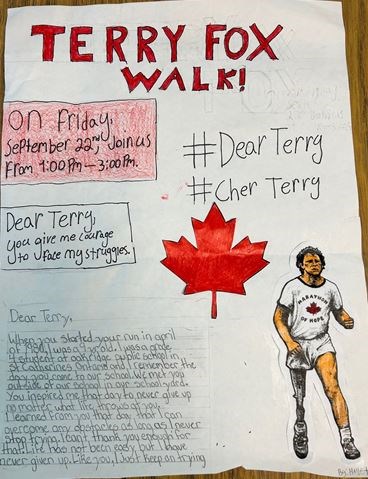 TERRY FOX
WALK!
On Friday,
September 22nd, Join us
From 1:00 Pm — 3:00 Pm.
#Dear Terry
#Cher Terry
Dear Terry,
you give me courage
to face my struggles.
MARATHON
OF HOPE
Dear Terry,
When you started your run in april
of 1980, I was 9 yrs old. I was a grade
4 student at oakridge public school in
St Catherines Ontario and I remember the
day you came to our school. We met you
outside of our school in our school yard.
You inspired me that day to never give up
no matter what life throws at you.
I learned from you that day, that I can
overcome any obstacles as long as I never
stop trying. I can't thank you enough for
that. Life has not been easy but I have
never given up. Like you, I just keep on trying
By: